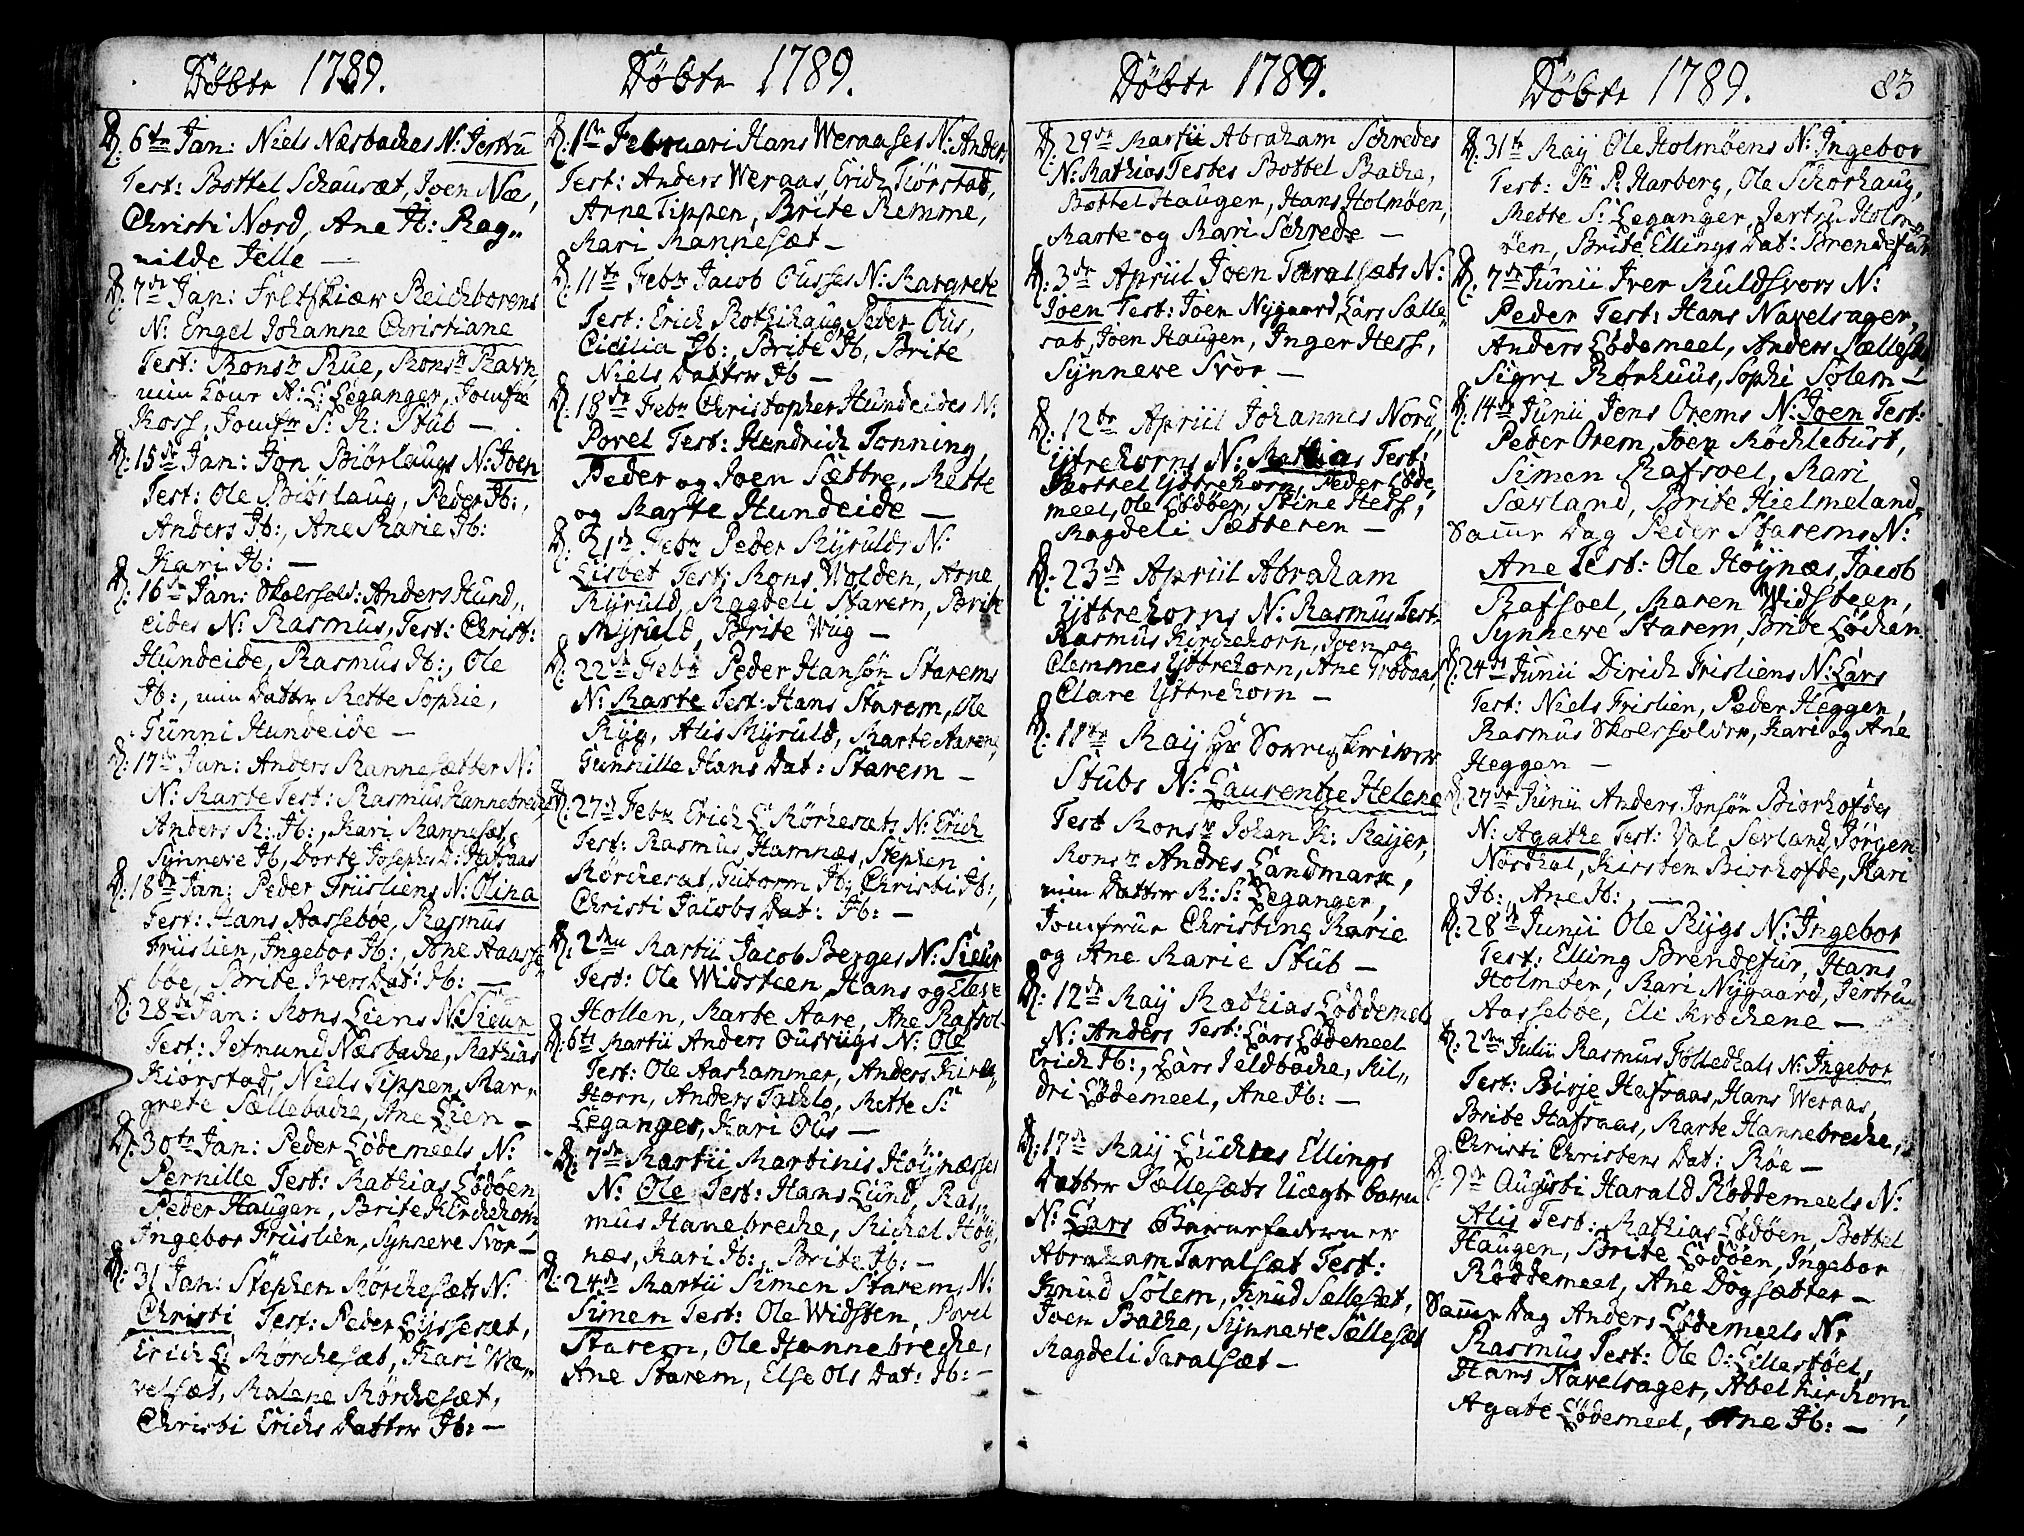 Döbte 1789.
D: 6te Jan: Niels Næsbaches N: Jertru
Test: Bottel Schausæt, Joen Næs,
Christi Nord, Ane Jb: Rag„
nilde Jelle —
D: 7de Jan: Feltskiær Reichborens
N: Engel Johanne Christiane
Test: Monsr Rue, Monsr Ravn,
min Kone A: L: Leganger, Jomfr
Ross, Jomfr S: R: Stub —
D: 15de Jan: Jon Biörlaugs N: Joen
Test: Ole Biörlaug, Peder Jb:,
Anders Jb:, Ane Marie Jb:
Kari Jb: —
D: 16de Jan: Skoelsold: Anders Hund„
eides N: Rasmus, Test: Christ:
Hundeide, Rasmus Jb:, Ole
Jb:, min Datter Mette Sophie,
Gunni Hundeide —
D: 17de Jan: Anders Mannesætter N:
N: Marte Test: Rasmus Hannebreche
Anders M: Jb:, Kari Mannesæt,
Synneve Jb, Dorte Josephs D: Hafraas
D: 18de Jan: Peder Friisliens N: Olina
Test: Hans Aassebøe, Rasmus
Friislien, Ingebor Jb:, Ane Aasse„
bøe, Brite Ivers Dat: Jb: —
D: 28de Jan: Mons Liens N: Sieur
Test: Jetmund Næsbache, Mathias
Kiörstad, Niels Tippen, Mar„
grete Sællebache, Ane Lien —
D: 30te Jan: Peder Lödemeels N:
Pernille Test: Mathias Lödöen
Peder Haugen, Brite Kirchehorn,
Ingebor Friislien, Synneve Svor —
D: 31 Jan: Stephen Mörchesæts N:
Christi Test: Peder Lyssesæt,
Erich L: Mörchesæt, Kari We„
velsæt, Malene Mörchesæt,
Christi Erichs Datter Jb: —
Döbte 1789.
D: 1ste Februari Hans Weraases N: Anders
Test: Anders Weraas, Erich Kiörstad,
Arne Tippen, Brite Remme,
Mari Mannesæt —
D: 11te Febr Jacob Ousses N: Margrete
Test: Erich Mothihaug, Peder Ous,
Cicilia Jb:, Brite Jb, Brite
Niels Datter Jb —
D: 18de Febr Christopher Hundeides N:
Povel Test: Hendrich Tonning,
Peder og Joen Sættre, Mette
og Marte Hundeide —
D: 21de Febr Peder Myrulds N:
Lisbet Test: Mons Wolden, Arne
Myruld, Magdeli Starem, Brite
Myruld, Brite Wiig —
D: 22de Febr Peder Hansøn Starems
N: Marte Test: Hans Starem, Ole
Ryg, Alis Myruld, Marte Aarem,
Gunnille Hans Dat: Starem —
D: 27d Febr Erich L: Mörchesæts N: Erich
Test: Rasmus Hamnæs, Stephen
Mörchesæt, Gutorm Jb:, Christi Jb:,
Christi Jacobs Dat: Jb: —
D: 2den Martii Jacob Berges N: Sieur
Test: Ole Widsteen, Hans og Eleve
Hollen, Marte Aare, Ane Rafsol
D: 6te Martii Anders Ousvigs N: Ole
Test: Ole Aashammer, Anders Kirke„
Horn, Anders Taklo, Mette S:
Leganger, Kari Olis —
D: 7de Martii Martinis Höynæsses
N: Ole Test: Hans Lund, Ras„
mus Hanebreche, Michel Höy„
næs, Kari Jb:, Brite Jb: —
D: 24de Martii Simen Starem, N:
Simen Test: Ole Widsten, Povel
Starem, Ole Hannebreche,
Ane Starem, Else Ols Dat: Jb: —
Döbte 1789.
D: 29de Martii Abraham Schredes
N: Mathias Testes Bottel Bache,
Bottel Haugen, Hans Holmöen,
Marte og Mari Schrede —
D: 3de Apriil Joen Taralsæts N:
Joen Test: Joen Nygaard, Lars Sælle„
sæt, Joen Haugen, Inger Hess,
Synneve Svor —
D: 12te Apriil Johannes Nord„
Ystrehorns N: Mathias Test:
Bottel Ystrehorn, Peder Löde„
meel, Ole Lödöen, Stine Hess,
Magdeli Sætteren —
D: 23de Apriil Abraham
Ystrehorns N: Rasmus Test:
Rasmus Kirchehorn, Joen og
Clemmes Ystrehorn, Ane Trodaas,
Clare Ystrehorn —
D: 11te Maij Hr Sorrenskriver
Stubs N: Laurentze Helene
Test Monsr Johan K: Meijer,
Monsr Andres Landmark,
min Datter M: S: Leganger,
Jomfrue Christine Marie
og Ane Marie Stub —
D: 12de Maij Mathias Löddemels
N: Anders Test: Lars Löddemeel
Erich Jb:, Lars Jeldbache, Kil„
dri Lödemeel, Ane Jb: —
D: 17de Maij Luckres Ellings
Datter Sællesæts Uægte barn
N: Lars Barnefaderen er
Abraham Taralsæt Test:
Knud Solem, Knud Sællesæt,
Joen Bache, Synneve Sællesæt
Magdeli Taralsæt —
Döbte 1789.
83
D: 31te Maij Ole Holmöens N: Ingebor
Test: Sr P: Harberg, Ole Schorhaug,
Mette S: Leganger, Jertru Holm„
öen, Brite Ellings Dat: Brendefur
D: 7de Junii Iver Muldsvors N:
Peder Test: Hans Navelsager,
Anders Lödemeel, Anders Sællesæt,
Sigri Mörhuus, Sophi Solem —
D: 14de Junii Jens Orems N: Joen Test:
Peder Orem, Joen Röchlebust,
Simen Rafsoel, Mari
Sævland, Brite Hielmeland
Samme Dag Peder Starems N:
Ane Test: Ole Höynæs, Jacob
Rafsoel, Maren Widsteen,
Synneve Starem, Brite Löchen
D: 24de Junii Dirich Frisliens N: Lars
Test: Niels Frislien, Peder Heggen,
Rasmus Skoelsolder, Kari og Ane
Heggen —
D: 27de Junii Anders Jonsön Biorhofdes
N: Agathe Test: Val Sevland, Jörgen
Nordkal, Kirsten Biorhofde, Kari
Jb:, Ane Jb: —
D: 28de Junii Ole Rygs N: Ingebor
Test: Elling Brendefur, Hans
Holmöen, Mari Nygaard, Jertru
Aassebøe, Eli Krochene —
D: 2den Julii Rasmus Tolledhals N: Ingebor
Test: Birje Hafraas, Hans Weraas,
Brite Hafraas, Marte Hannebreche,
Christi Christens Dat: Röe —
D: 9de Augusti Harald Röddemeels N:
Alis Test: Mathias Lödöen, Bottel
Haugen, Brite Lödöen, Ingebor
Röddemeel, Ane Dogsætter —
Samme Dag Anders Lödemeels N:
Rasmus Test: Ole O: Lillestöel,
Hans Navelsager, Abel Kirchorn,
Agate Lödemeel, Ane Jb: —